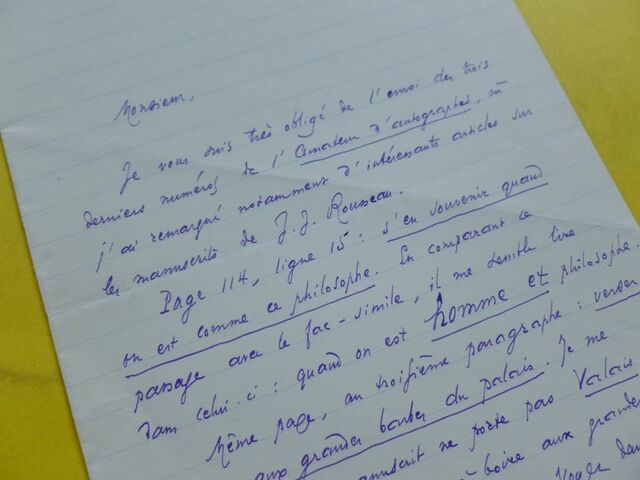 Monsieur,
Je vous suis très obligé de l'envoi des trois
derniers numéros de l'Amateur d'autographes, où
j'ai remarqué notamment d'intéressants articles sur
les manuscrits de J. J. Rousseau.
Page 114, ligne 15 : s'en souvenir quand
on est comme ce philosophe. En comparant ce
passage avec le fac-simile, il me semble lire
dans celui-ci : quand on est homme et philosophe.
Même page, au troisième paragraphe : verser
aux grandes barbes du palais. Je me
manuscrit ne porte pas Valais
boire aux grandes